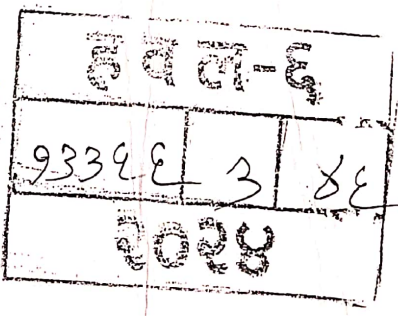 हवल-६
१३३६६ ३ ४६
२०२४